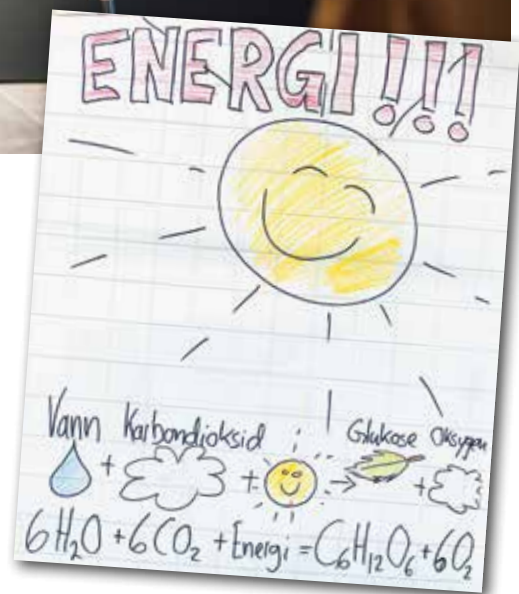 ENERGI!!!
Vann Karbondioksid Glukose Oksygen
+ + → +
6H₂O + 6CO₂ + Energi = C₆H₁₂O₆ + 6O₂